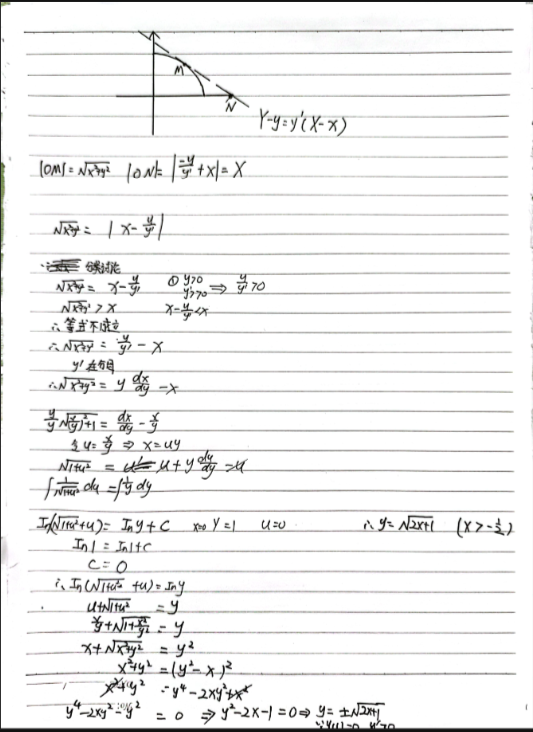 M
N
Y-y=y'(X-x)
|OM|=√x²+y² |ON|=|-y/y'+x|=X
√x²+y²=|x-y/y'|
√x²+y²= x-y/y' ① y>0 y'>0 ⇒ y/y'>0
√x²+y²>x x-y/y'<x
∴等式不成立
∴√x²+y² = y/y' - x
∴√x²+y² = y dx/dy -x
y/y √(x/y)²+1 = dx/dy - x/y
令u=x/y ⇒ x=uy
√1+u² = u+y du/dy -u
∫1/√1+u² du=∫1/y dy
In(√1+u²+u)= Iny+C x=0 y=1 u=0 ∴y=√2x+1 (x>-1/2)
In1=In1+c
C=0
∴In(√1+u²+u)=Iny
u+√1+u² =y
x/y+√1+x²/y² =y
x+√x²+y² = y²
x²+y² =(y²-x)²
x²+y² =y⁴-2xy²+x²
y⁴-2xy²-y² =0 ⇒ y²-2x-1=0⇒ y=±√2x+1